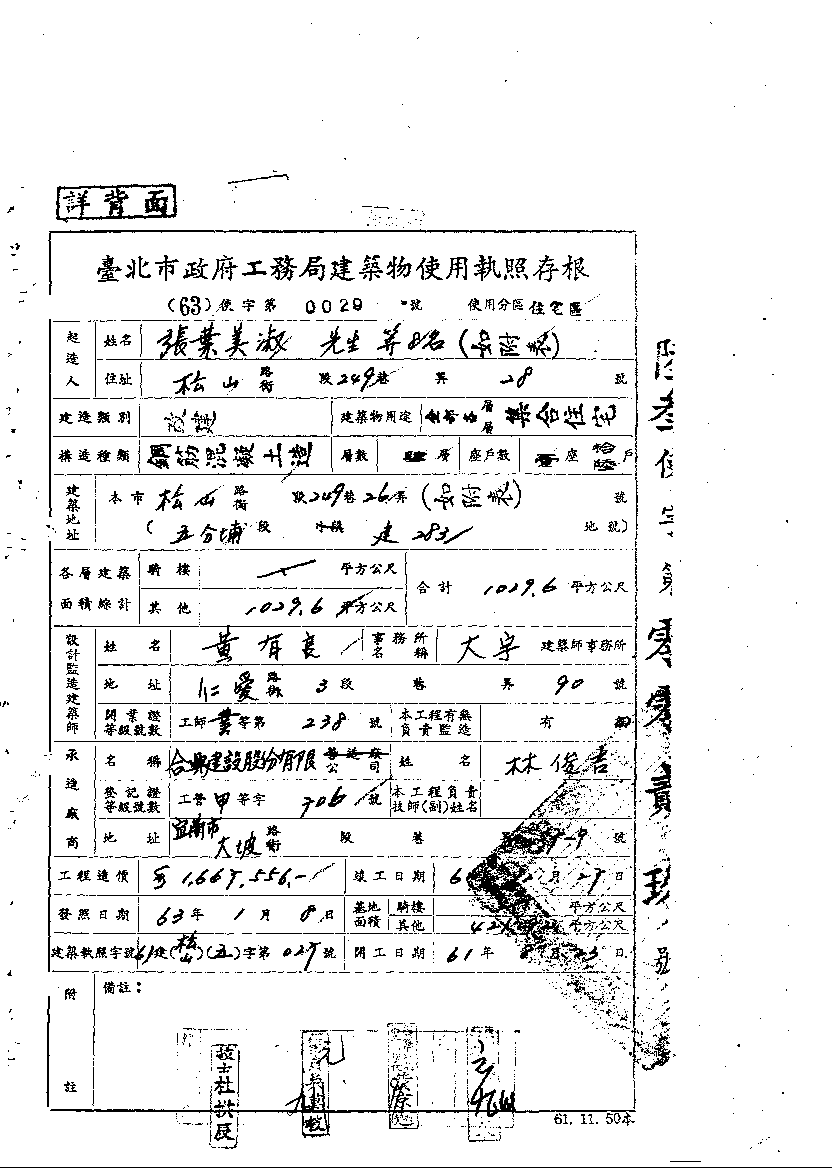 詳背面
臺北市政府工務局建築物使用執照存根
(63)使字第 0029 號 使用分區 住宅區
起造人 姓名 張葉美淑 先生 等8名(如附表)
住址 松山 路街 段249巷 弄 28 號
建造類別 改建 建築物用途 全部各層層 集合住宅
構造種類 鋼筋混凝土造 層數 層 座戶數 座 拾陸戶
建築地址 本市 松山 路街 段249巷26弄(如附表) 號
(五分埔段 小段 建 283 地號)
各層建築面積綜計 騎樓 平方公尺 合計 1029.6 平方公尺
其他 1029.6 平方公尺
設計監造建築師 姓名 黃有良 事務所名稱 大宇 建築師事務所
地址 仁愛 路街 3段 巷 弄 90 號
開業證等級號數 工師 等第 238 號 本工程有無負責監造 有
承造廠商 名稱 合興建設股份有限公司 姓名 林俊吉
登記證等級號數 工營甲等字 306 號 本工程負責技師(副)姓名
地址 宜蘭市 大坡 路街 段 巷 號
工程造價 1,667,556.- 竣工日期 月 日
發照日期 63年 1月 8日 基地面積 騎樓 平方公尺
其他 平方公尺
建築執照字號 61建(松山)(五)字第 027 號 開工日期 61年 月 23日
附註 備註：
技士杜拱辰
61.11.50本